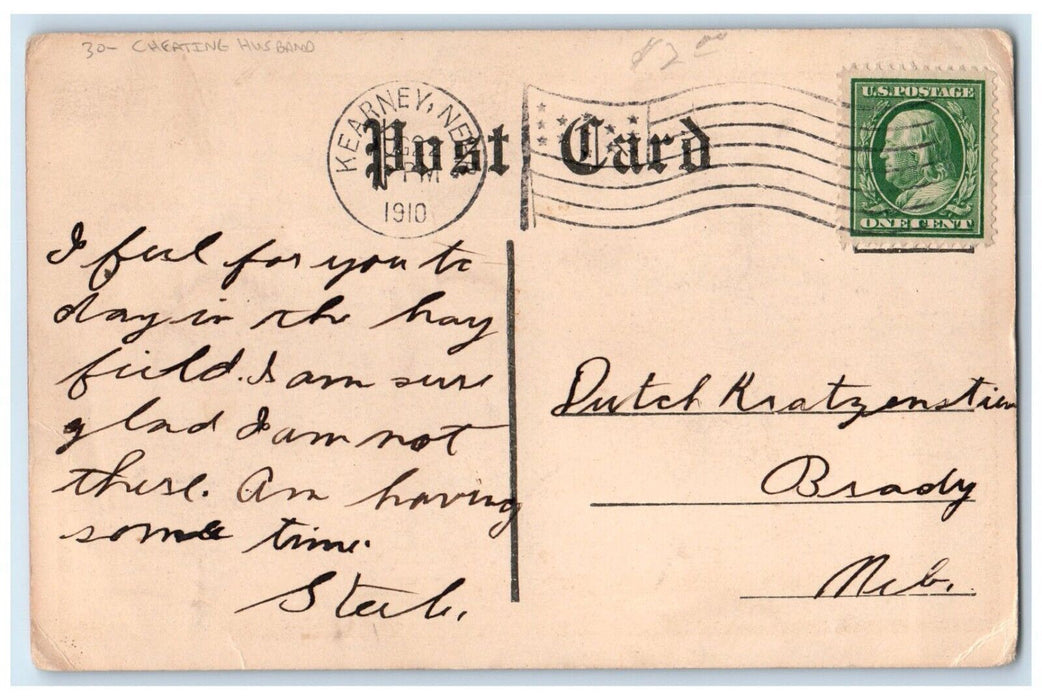 30- CHEATING HUSBAND
$2.00
KEARNEY, NEB
1910
Post Card
U.S. POSTAGE
ONE CENT
I feel for you to
day in the hay
field. I am sure
glad I am not
there. Am having
some time.
Dutch Kratzenstien
Brady
Neb.